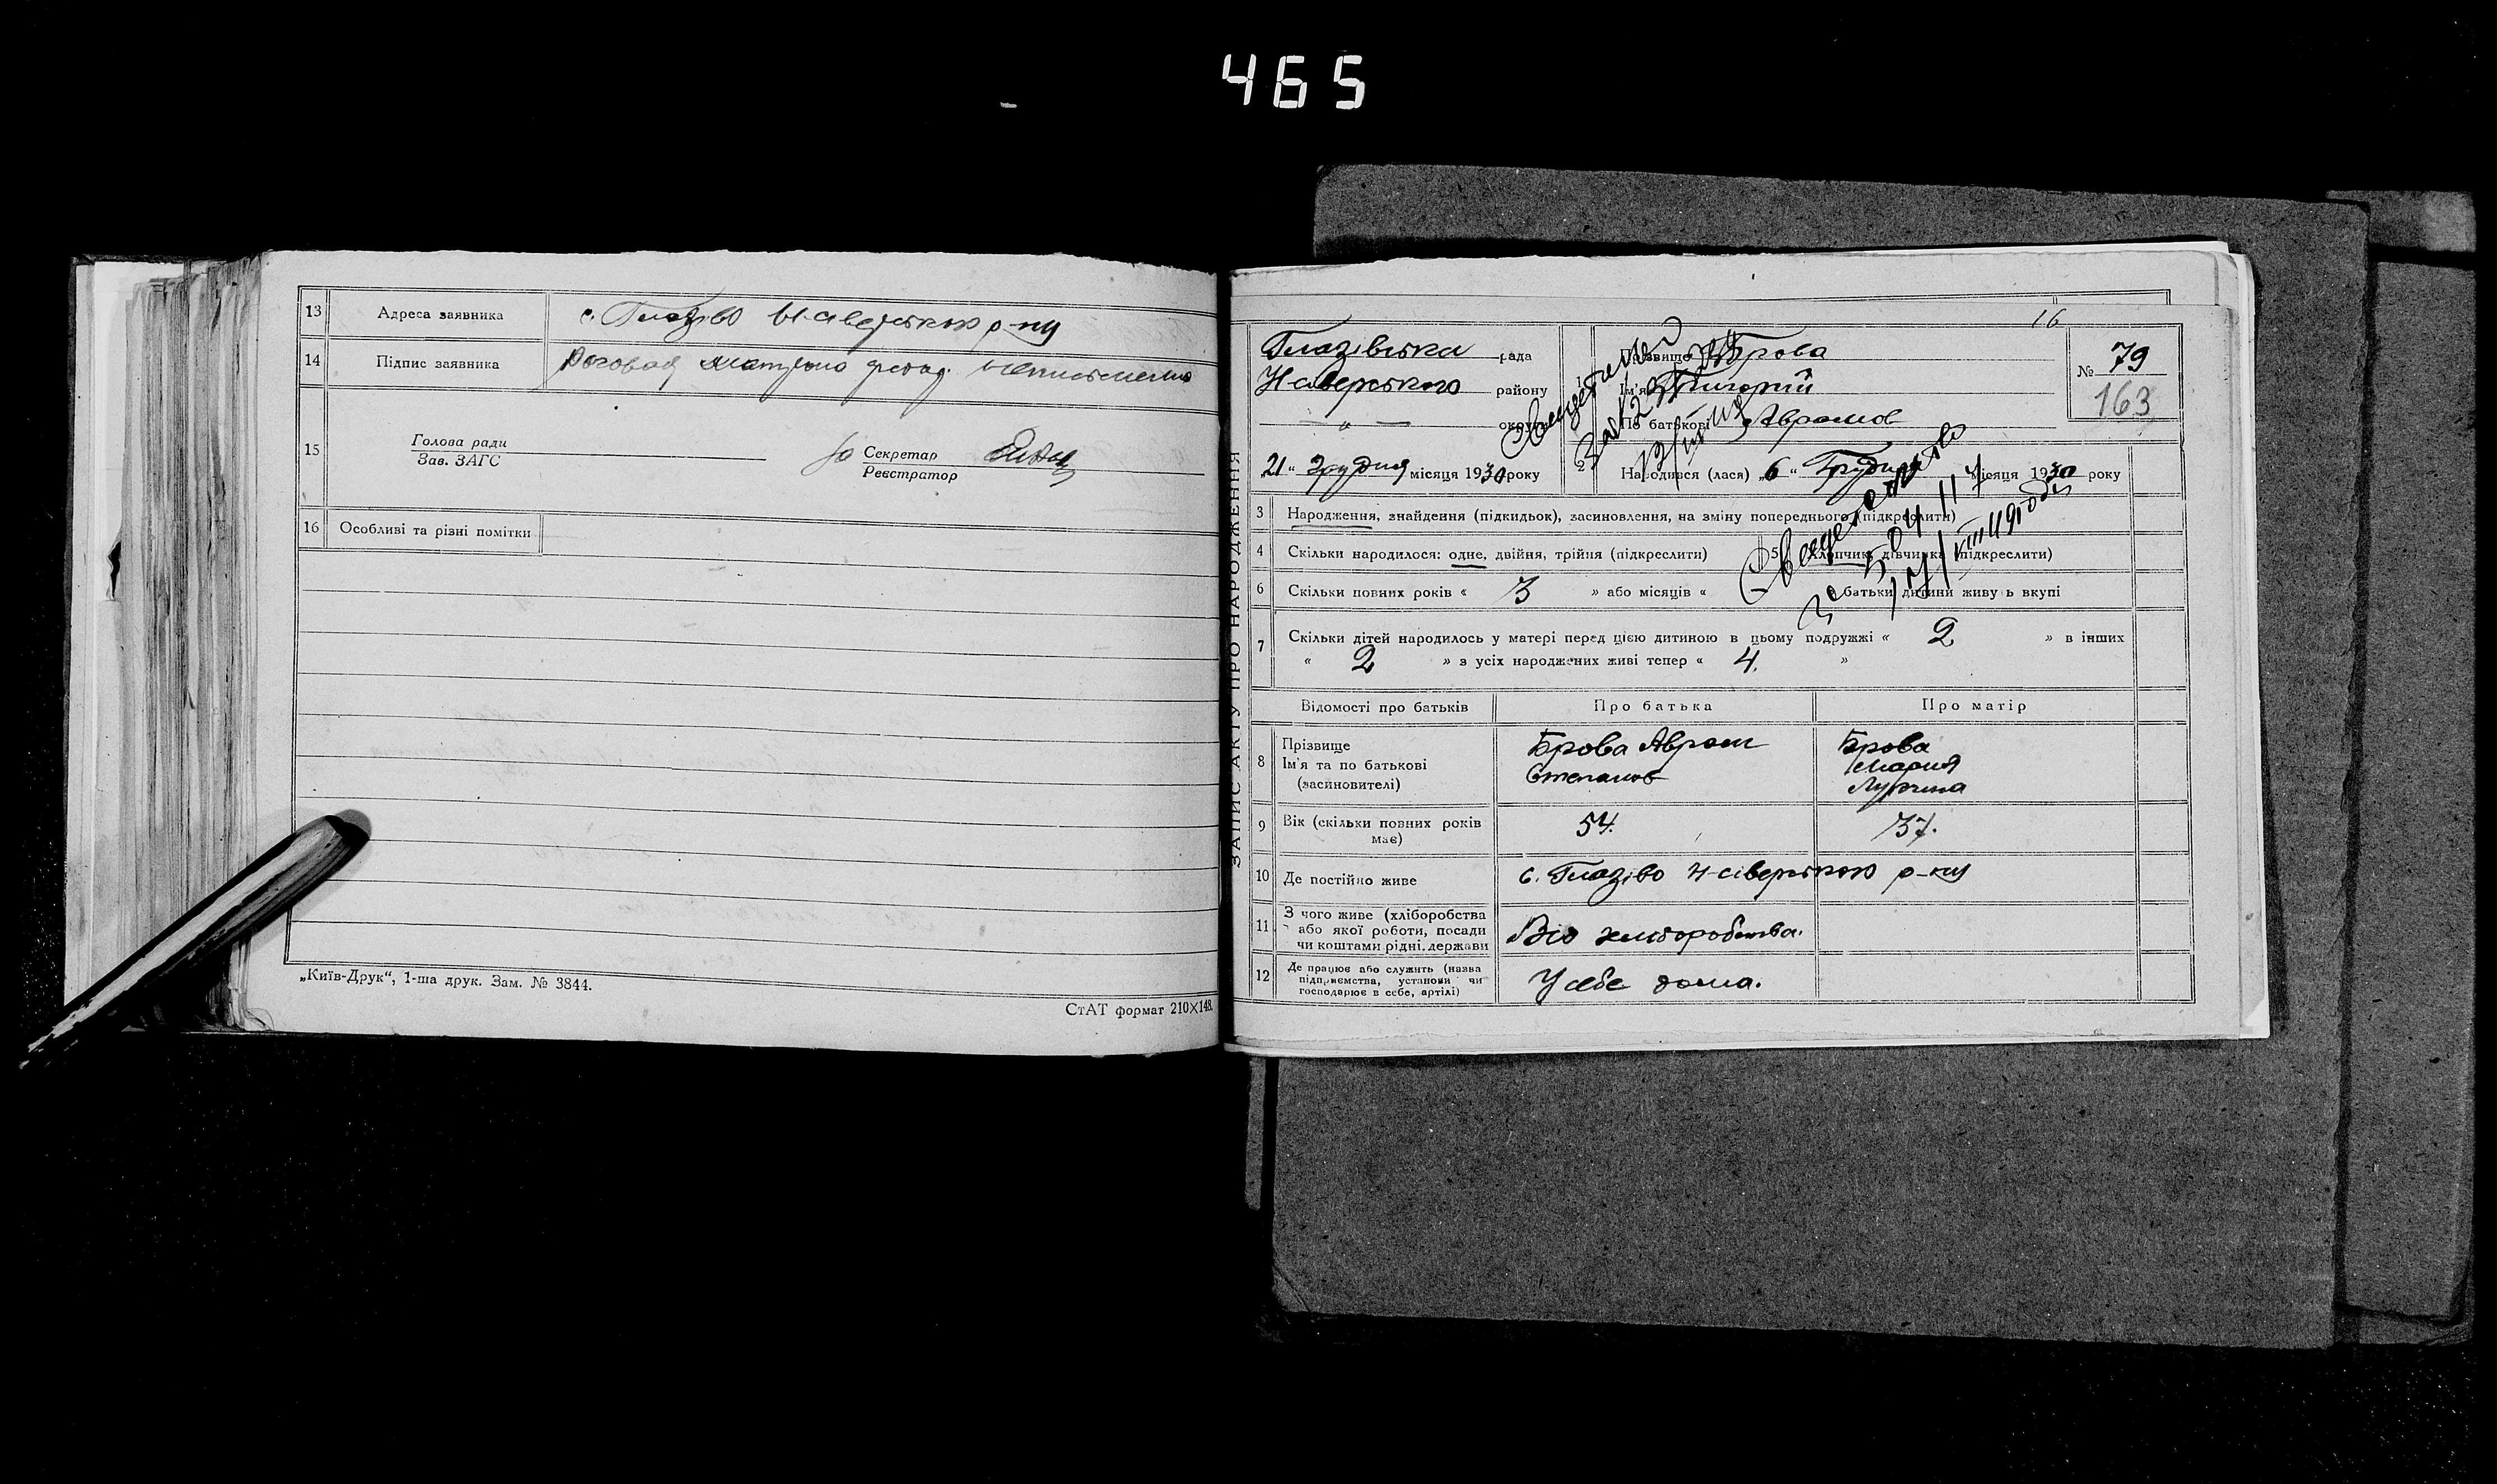 465
13 Адреса заявника с. Глазіво Н-сіверського р-ну
14 Підпис заявника неписьменна
15 Голова ради
Зав. ЗАГС
Секретар
Реєстратор
16 Особливі та різні помітки
„Київ-Друк“, 1-ша друк. Зам. № 3844.
СтАТ формат 210×148.
ЗАПИС АКТУ ПРО НАРОДЖЕННЯ
16
Глазівська рада
Н-сіверського району
— „ — округи
„21“ Грудня місяця 1930 року
1 Прізвище Брова
Ім'я Григорій
По батькові Аврамов
№ 79
163
2 Народився (лася) „6“ Грудня місяця 1930 року
3 Народження, знайдення (підкидьок), засиновлення, на зміну попереднього (підкреслити)
4 Скільки народилося: одне, двійня, трійня (підкреслити) 5 Хлопчик, дівчинка (підкреслити)
6 Скільки повних років « 3 » або місяців « батьки дитини живу ь вкупі
7 Скільки дітей народилось у матері перед цією дитиною в цьому подружжі « 2 » в інших
« 2 » з усіх народжених живі тепер « 4. »
Відомості про батьків Про батька Про матір
8 Прізвище
Ім'я та по батькові
(засиновителі)
Брова Аврам
Степанов
Брова
Мария
9 Вік (скільки повних років має) 54. 37.
10 Де постійно живе с. Глазіво Н-сіверського р-ну
11 З чого живе (хліборобства
або якої роботи, посади
чи коштами рідні, держави
Від хліборобства.
12 Де працює або служить (назва
підприємства, установи чи
господарює в себе, артілі)
У себе дома.
Свидетельство